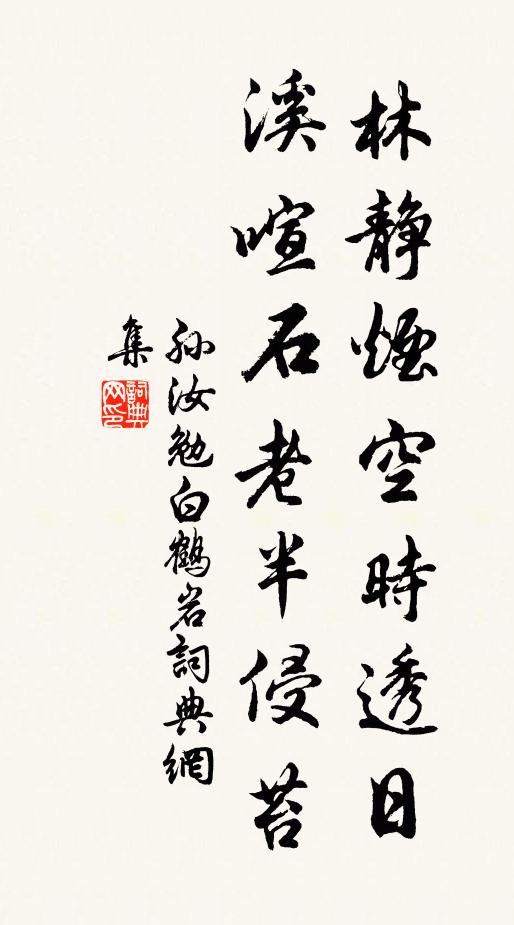 林静煙空時透日
溪喧石老半侵苔
孙汝勉白鶴岩詞典網
集
詞典
网印